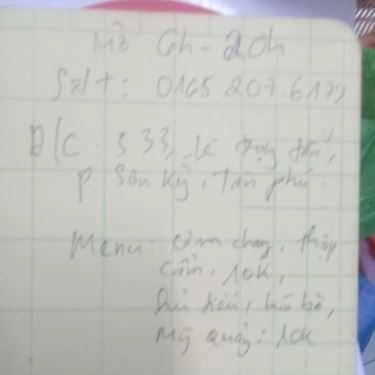 Mở 6h - 20h
Sđt: 0165 207 6179
Đ/C: 533, Lê Trọng Tấn,
P Sơn Kỳ, Tân phú.
Menu: cơm chay, thập
cẩm, 10k,
hủ tiếu, bún bò,
Mỹ quảng: 10k